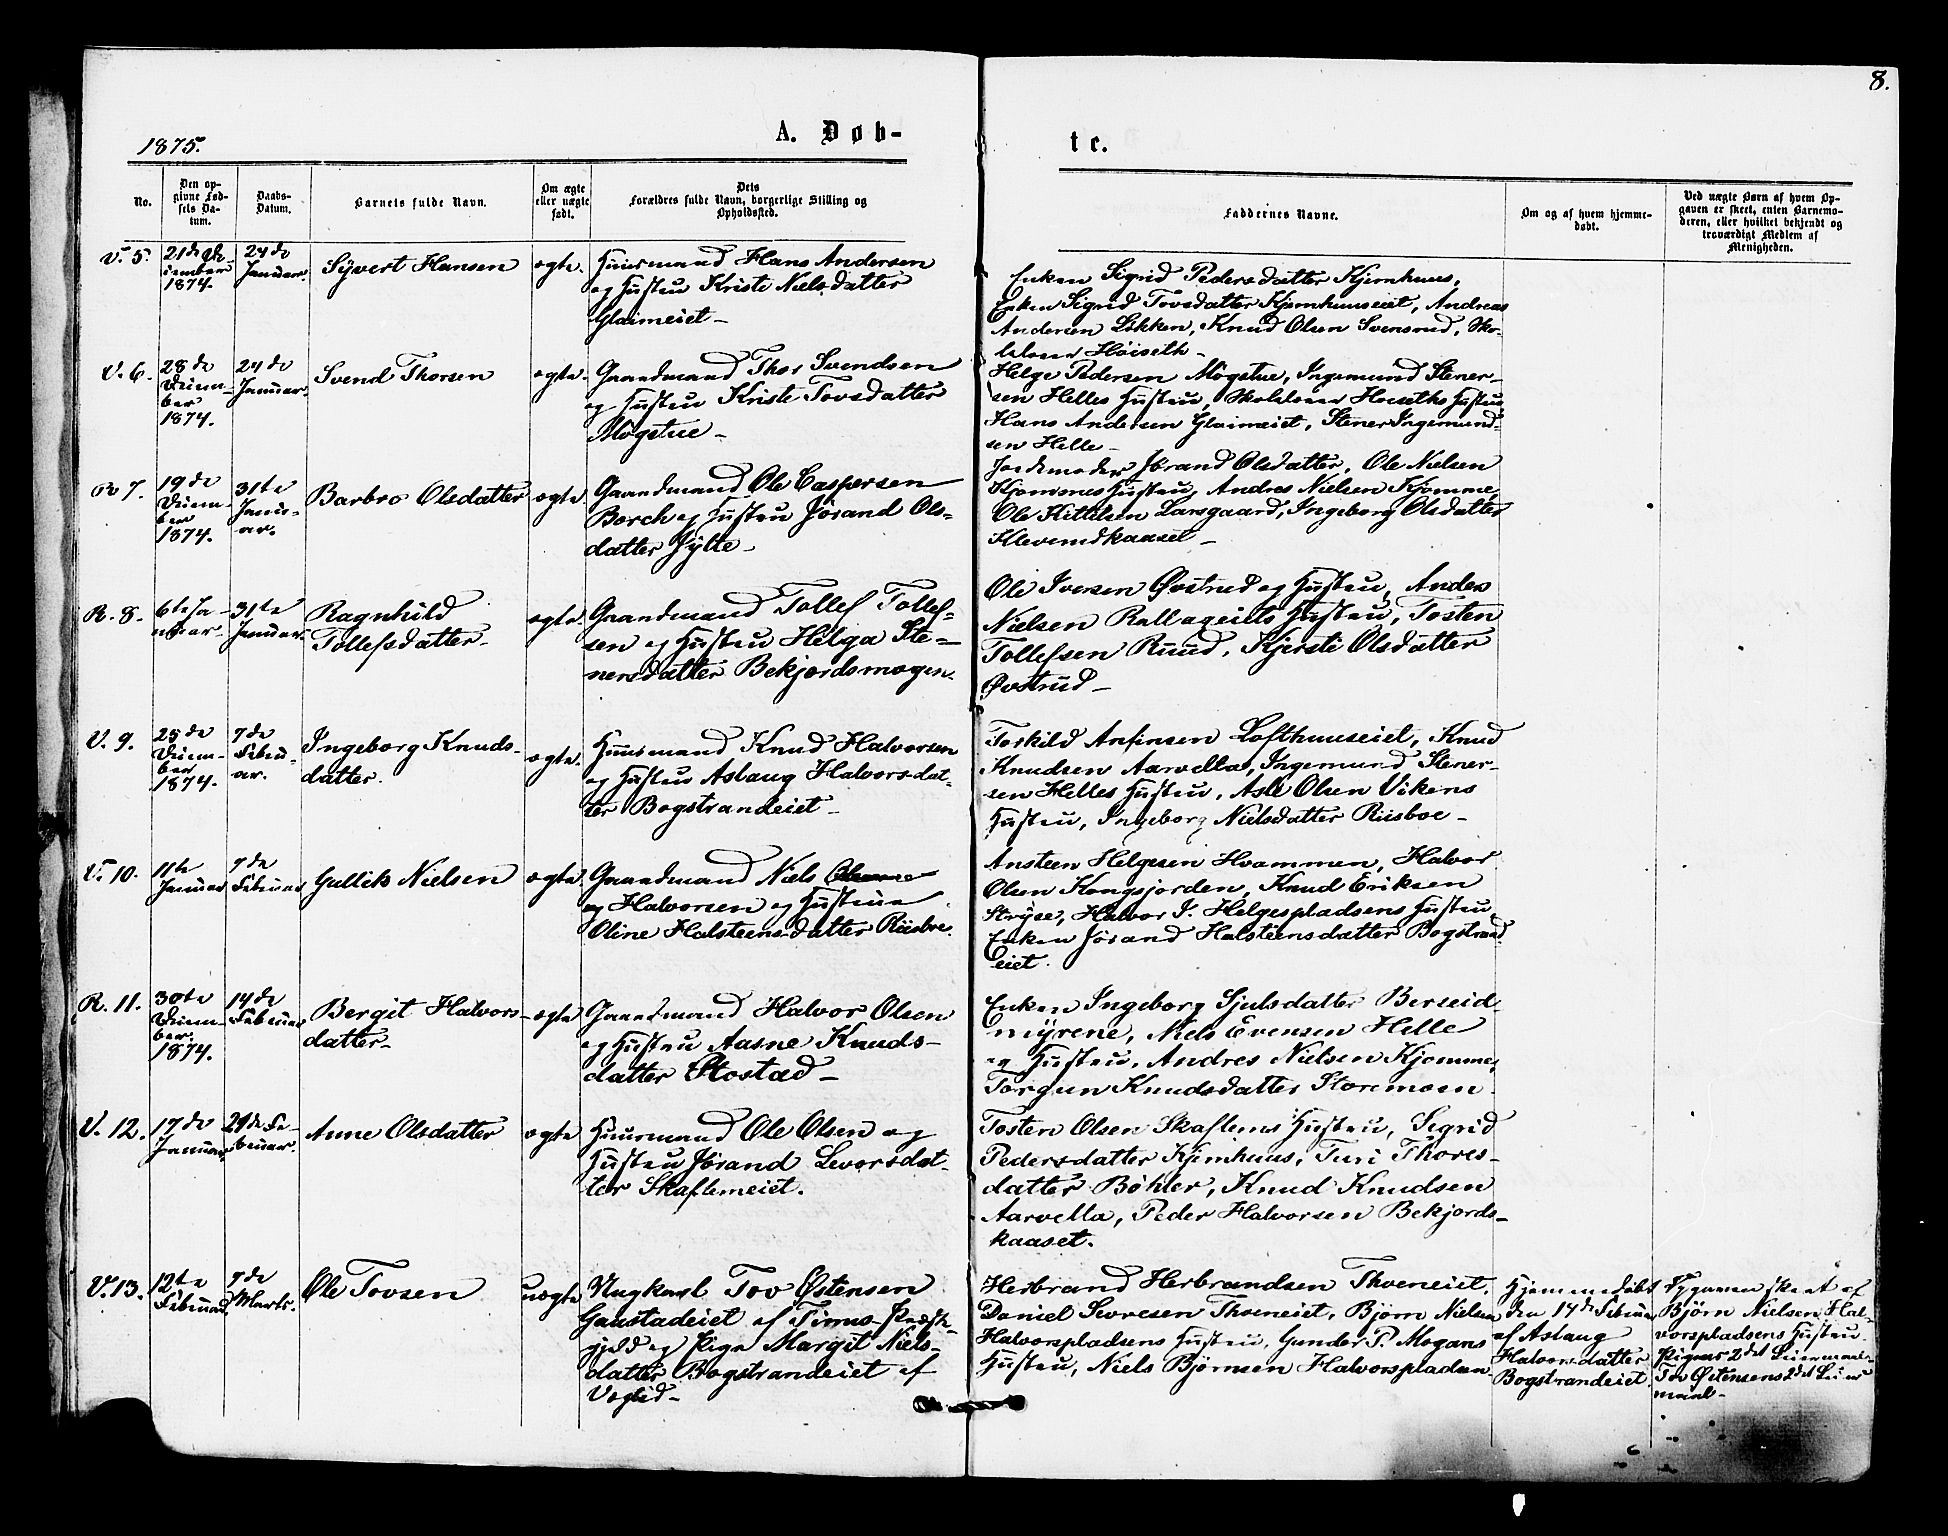 8.
1875.
A. Døb-
te.
No.
Den op-
givne Fød-
sels Da-
tum.
Daabs-
Datum.
Barnets fulde Navn.
Om ægte
eller uægte
født.
Dets
Forældres fulde Navn, borgerlige Stilling og
Opholdssted.
Faddernes Navne.
Om og af hvem hjemme-
døbt.
Ved uægte Børn af hvem Op-
gaven er skeet, enten Barnemo-
deren, eller hvilket bekjendt og
troværdigt Medlem af
Menigheden.
V. 5.
21de De-
cember
1874.
24de
Januar.
Syvert Hansen
ægte.
Huusmand Hans Andersen
og Hustru Kristi Nielsdatter
Glaimeiet –
Enken Sigrid Pedersdatter Kjemhuus,
Enken Sigrid Tovsdatter Kjemhuuseiet, Andreas
Andersen Løkken, Knud Olsen Svensrud, Sko-
lelærer Høiseth –
V. 6.
28de
Decem-
ber
1874.
24de
Januar.
Svend Thorsen
ægte.
Gaardmand Thor Svendsen
og Hustru Kristi Tovsdatter
Møgstue –
Helge Pedersen Møgstue, Ingemund Stener-
sen Helles Hustru, Skolelærer Høiseths Hustru,
Hans Andersen Glaimeiet, Stener Ingemund-
sen Helle –
R 7.
19de
Decem-
ber
1874.
31te
Janu-
ar.
Barbro Olsdatter
ægte.
Gaardmand Ole Caspersen
Borch og Hustru Jørand Ols-
datter Jylte –
Jordemoder Jørand Olsdatter, Ole Nielsen
Kjommes Hustru, Andres Nielsen Kjomme,
Ole Kittilsen Larsgaard, Ingeborg Olsdatter
Klevendkaaset –
R. 8.
6te Ja-
nuar.
31te
Januar.
Ragnhild
Tollefsdatter –
ægte.
Gaardmand Tollef Tollef-
sen og Hustru Helga Ste-
nersdatter Bekjordsmogen.
Ole Iversen Øvstrud og Hustru, Anders
Nielsen Rallageilts Hustru, Tosten
Tollefsen Ruud, Kjersti Olsdatter
Øvstrud –
V. 9.
25de
Decem-
ber
1874.
7de
Febru-
ar.
Ingeborg Knuds-
datter.
ægte.
Huusmand Knud Halvorsen
og Hustru Aslaug Halvorsdat-
ter Bogstrandeiet –
Torkild Anfinsen Lofthuuseiet, Knud
Knudsen Aarvella, Ingemund Stener-
sen Helles Hustru, Asle Olsen Vikens
Hustru, Ingeborg Nielsdatter Riisboe –
V. 10.
11te
Januar
7de
Februar
Gullik Nielsen
ægte.
Gaardmand Niels
og Halvorsen og Hustrue
Oline Halsteensdatter Riisbve.
Ansteen Helgesen Hvammen, Halvor
Olsen Kongsjorden, Knud Eriksen
Stryse, Halvor I. Helgespladsens Hustru,
Enken Jørand Halsteensdatter Bogstrand-
eiet.
R. 11.
30te
Decem-
ber.
1874.
14de
Februar
Bergit Halvors-
datter –
ægte
Gaardmand Halvor Olsen
og Hustru Aasne Knuds-
datter Stostad –
Enken Ingeborg Sjulsdatter Berseid-
myrene, Niels Evensen Helle
og Hustru, Andres Nielsen Kjomme,
Torgun Knudsdatter Storemoen.
V. 12.
17de
Januar
21de Fe-
bruar.
Anne Olsdatter
ægte
Huusmand Ole Olsen og
Hustru Jørand Levorsdat-
ter Skaflemeiet.
Tosten Olsen Skaflems Hustru, Sigrid
Pedersdatter Kjemhuus, Turi Thores-
datter Bøhler, Knud Knudsen
Aarvella, Peder Halvorsen Bekjords-
kaaset.
V. 13.
12te
Februar
7de
Marts.
Ole Tovsen
uægte
Ungkarl Tov Østensen
Gaustadeiet af Tinns Præste-
gjeld og Pige Margit Niels-
datter Bogstrandeiet af
Veglid –
Herbrand Herbrandsen Thoeneiet,
Daniel Sevresen Thoeneiet, Bjørn Nielsen
Halvorspladsens Hustru, Gunder P. Mogans
Hustru, Niels Bjørnsen Halvorspladsen
Hjemmedøbt
den 14de Februar
af Aslaug
Halvorsdatter
Bogstrandeiet.
Opgaven skeet af
Bjørn Nielsen Hal-
vorspladsens Hustru.
Pigens 2det Leiermaal.
Tov Østensens 2det Leier
maal –